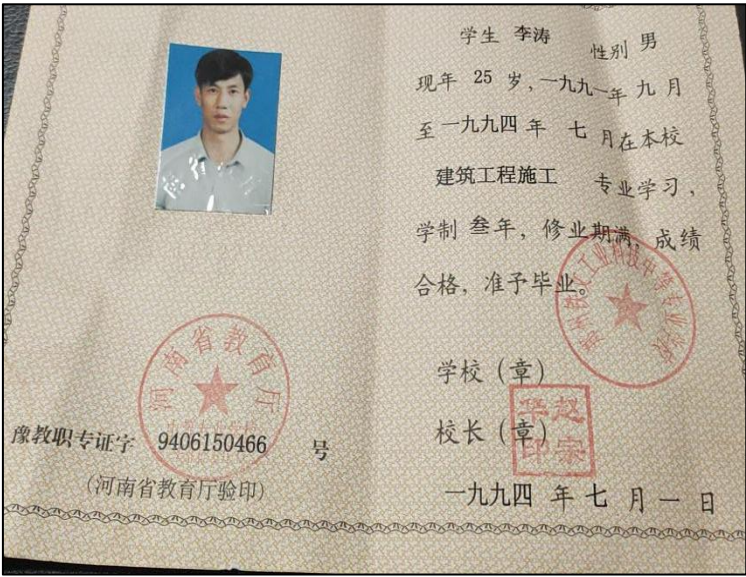 学生 李涛 性别 男
现年 25 岁，一九九一年 九 月
至 一九九四 年 七 月在本校
建筑工程施工 专业学习，
学制 叁年，修业期满，成绩
合格，准予毕业。
学校（章）
校长（章）
华赵
印宗
一九九四 年 七 月 一 日
河南省教育厅
豫教职专证字 9406150466 号
（河南省教育厅验印）